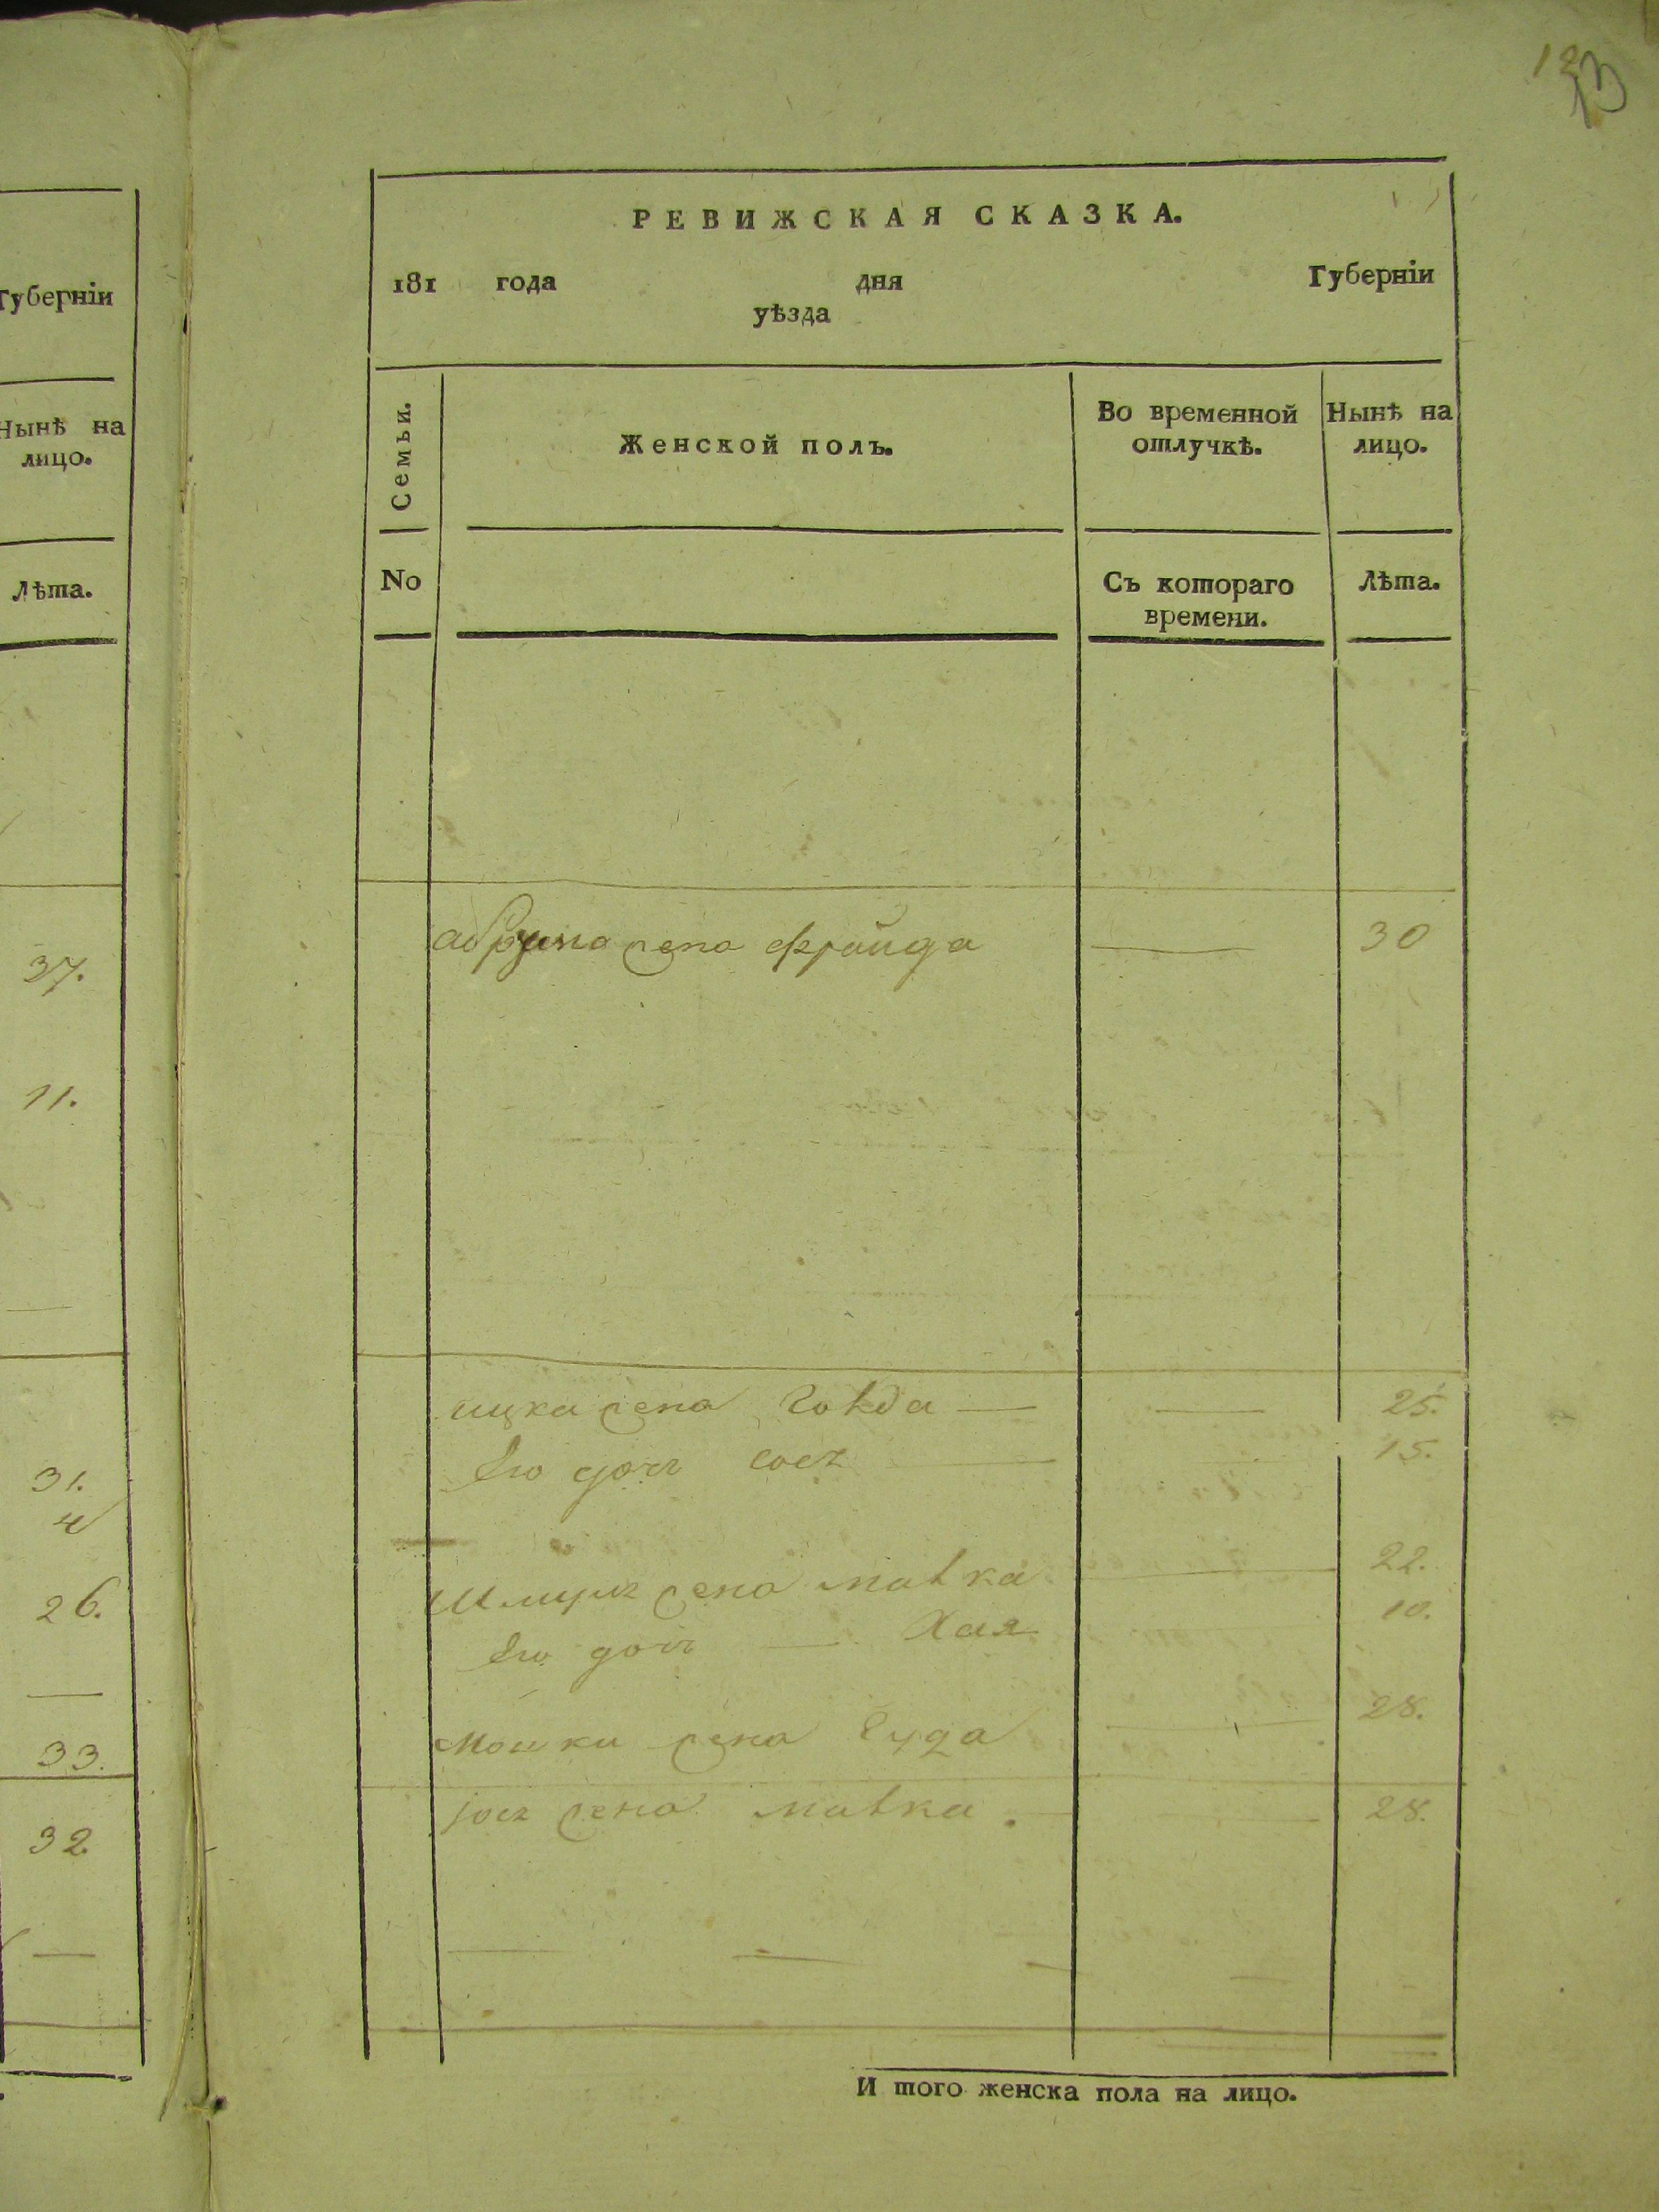 12
13
Губерніи
Нынѣ на
лицо.
Лѣта.
37.
11.
31.
4
26.
33.
32.
РЕВИЖСКАЯ СКАЗКА.
181 года дня Губерніи
уѣзда
Семьи. Женской полъ. Во временной отлучкѣ. Нынѣ на лицо.
No Съ котораго времени. Лѣта.
жена фрайда 30
ицка жена 25.
Его доч 15.
жена 22.
Его доч Хая 10.
Мошки жена 28.
жена 28.
И того женска пола на лицо.